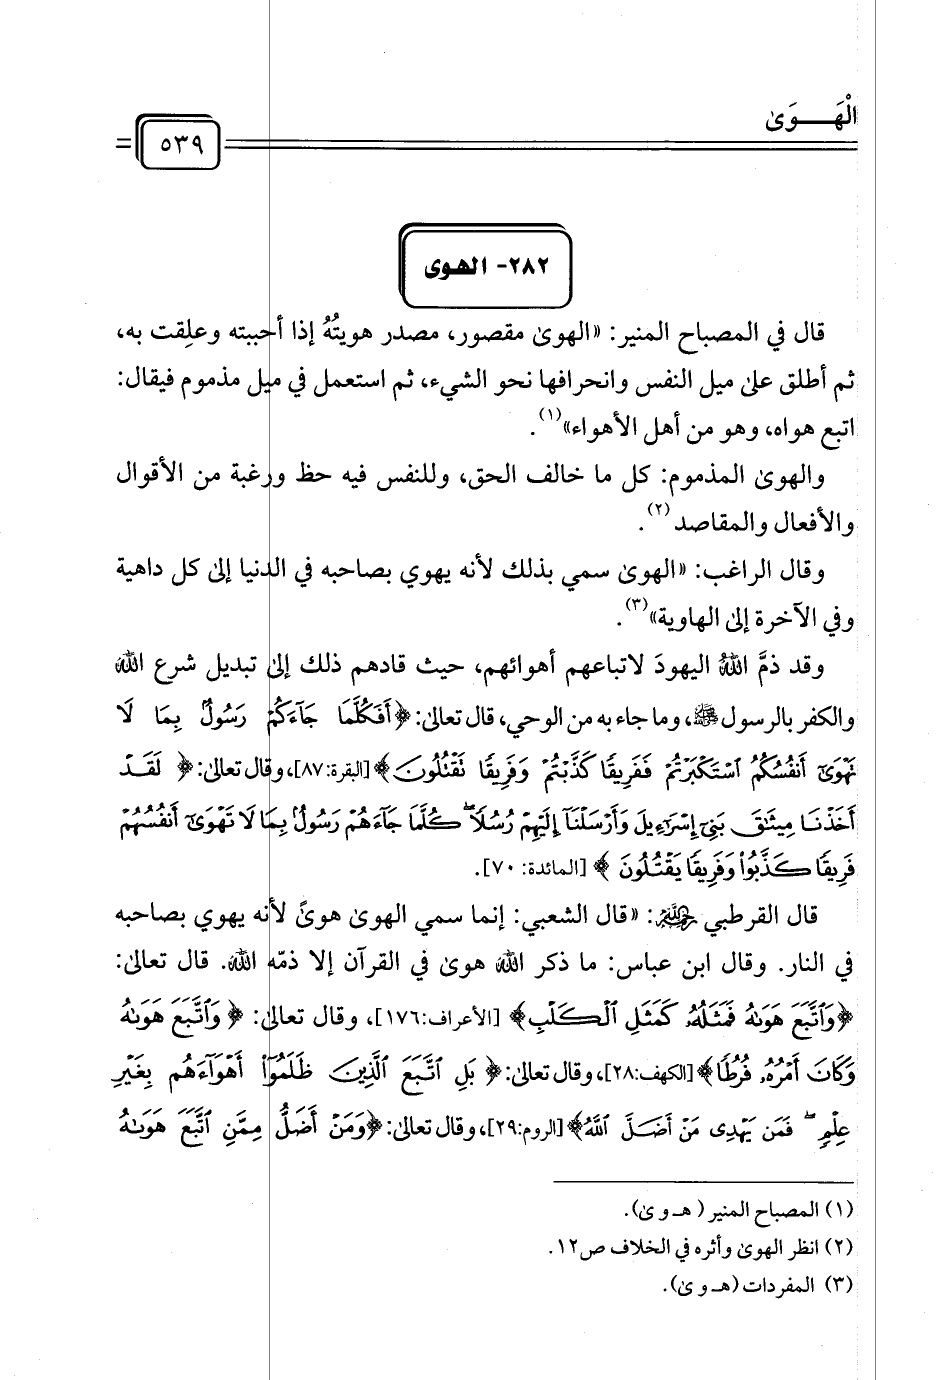 الْهَـــوَىٰ
٥٣٩
٢٨٢- الهوى
قال في المصباح المنير: «الهوىٰ مقصور، مصدر هويتُهُ إذا أحببته وعلِقت به،
ثم أطلق علىٰ ميل النفس وانحرافها نحو الشيء، ثم استعمل في ميل مذموم فيقال:
اتبع هواه، وهو من أهل الأهواء»(١).
والهوىٰ المذموم: كل ما خالف الحق، وللنفس فيه حظ ورغبة من الأقوال
والأفعال والمقاصد(٢).
وقال الراغب: «الهوىٰ سمي بذلك لأنه يهوي بصاحبه في الدنيا إلىٰ كل داهية
وفي الآخرة إلىٰ الهاوية»(٣).
وقد ذمَّ اللهُ اليهودَ لاتباعهم أهوائهم، حيث قادهم ذلك إلىٰ تبديل شرع الله
والكفر بالرسول ﷺ، وما جاء به من الوحي، قال تعالىٰ: ﴿أَفَكُلَّمَا جَآءَكُمْ رَسُولٌۢ بِمَا لَا
تَهْوَىٰٓ أَنفُسُكُمُ ٱسْتَكْبَرْتُمْ فَفَرِيقًا كَذَّبْتُمْ وَفَرِيقًا تَقْتُلُونَ﴾ [البقرة:٨٧]، وقال تعالىٰ: ﴿لَقَدْ
أَخَذْنَا مِيثَٰقَ بَنِىٓ إِسْرَٰٓءِيلَ وَأَرْسَلْنَآ إِلَيْهِمْ رُسُلًا ۖ كُلَّمَا جَآءَهُمْ رَسُولٌۢ بِمَا لَا تَهْوَىٰٓ أَنفُسُهُمْ
فَرِيقًا كَذَّبُوا۟ وَفَرِيقًا يَقْتُلُونَ﴾ [المائدة: ٧٠].
قال القرطبي رحمه الله: «قال الشعبي: إنما سمي الهوىٰ هوىً لأنه يهوي بصاحبه
في النار. وقال ابن عباس: ما ذكر الله هوىٰ في القرآن إلا ذمّه الله. قال تعالىٰ:
﴿وَٱتَّبَعَ هَوَىٰهُ فَمَثَلُهُۥ كَمَثَلِ ٱلْكَلْبِ﴾ [الأعراف:١٧٦]، وقال تعالىٰ: ﴿وَٱتَّبَعَ هَوَىٰهُ
وَكَانَ أَمْرُهُۥ فُرُطًا﴾ [الكهف:٢٨]، وقال تعالىٰ: ﴿بَلِ ٱتَّبَعَ ٱلَّذِينَ ظَلَمُوٓا۟ أَهْوَآءَهُم بِغَيْرِ
عِلْمٍ ۖ فَمَن يَهْدِى مَنْ أَضَلَّ ٱللَّهُ﴾ [الروم:٢٩]، وقال تعالىٰ: ﴿وَمَنْ أَضَلُّ مِمَّنِ ٱتَّبَعَ هَوَىٰهُ
(١) المصباح المنير (هـ و ىٰ).
(٢) انظر الهوىٰ وأثره في الخلاف ص١٢.
(٣) المفردات (هـ و ىٰ).